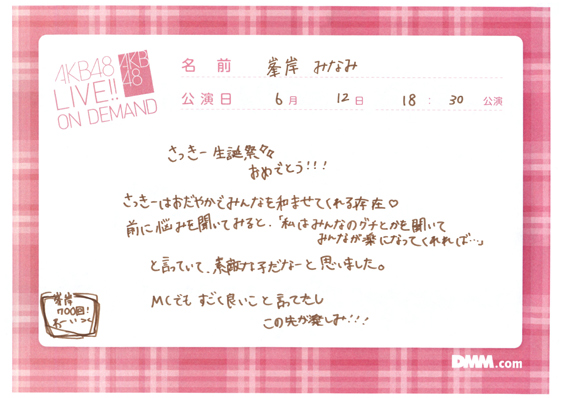 AKB48
LIVE!!
ON DEMAND
AKB
48
名 前 峯岸 みなみ
公演日 6月 12日 18:30 公演
さっきー生誕祭
おめでとう!!!
さっきーはおだやかでみんなを和ませてくれる存在♡
前に悩みを聞いてみると、「私はみんなのグチとかを聞いて
みんなが楽になってくれれば…」
と言っていて、素敵な子だなーと思いました。
MCでもすごく良いこと言ってたし
この先が楽しみ!!!
峯岸
700回!
わーいっ
DMM.com